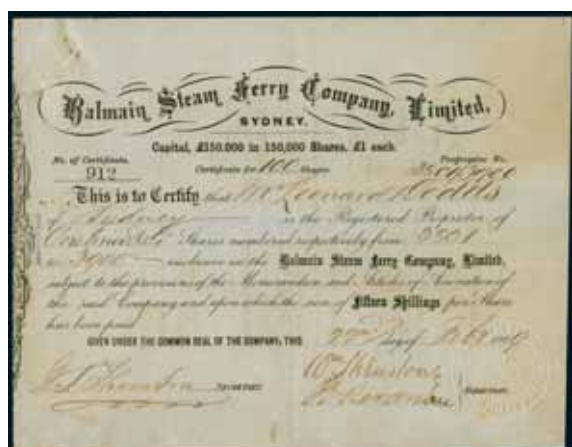 Balmain Steam Ferry Company, Limited.
SYDNEY.
Capital, £150.000 in 150,000 Shares. £1 each.
No. of Certificate. Certificate for 100 Shares. Progressive No.
912
This is to Certify that Mr Leonard Dodds
of Sydney is the Registered Proprietor of
One hundred Shares numbered respectively from 3801
to 3900 inclusive in the Balmain Steam Ferry Company, Limited,
subject to the provisions of the Memorandum and Articles of Association of
the said Company and upon which the sum of Fifteen Shillings per Share
has been paid
GIVEN UNDER THE COMMON SEAL OF THE COMPANY, THIS 22nd day of
SECRETARY.